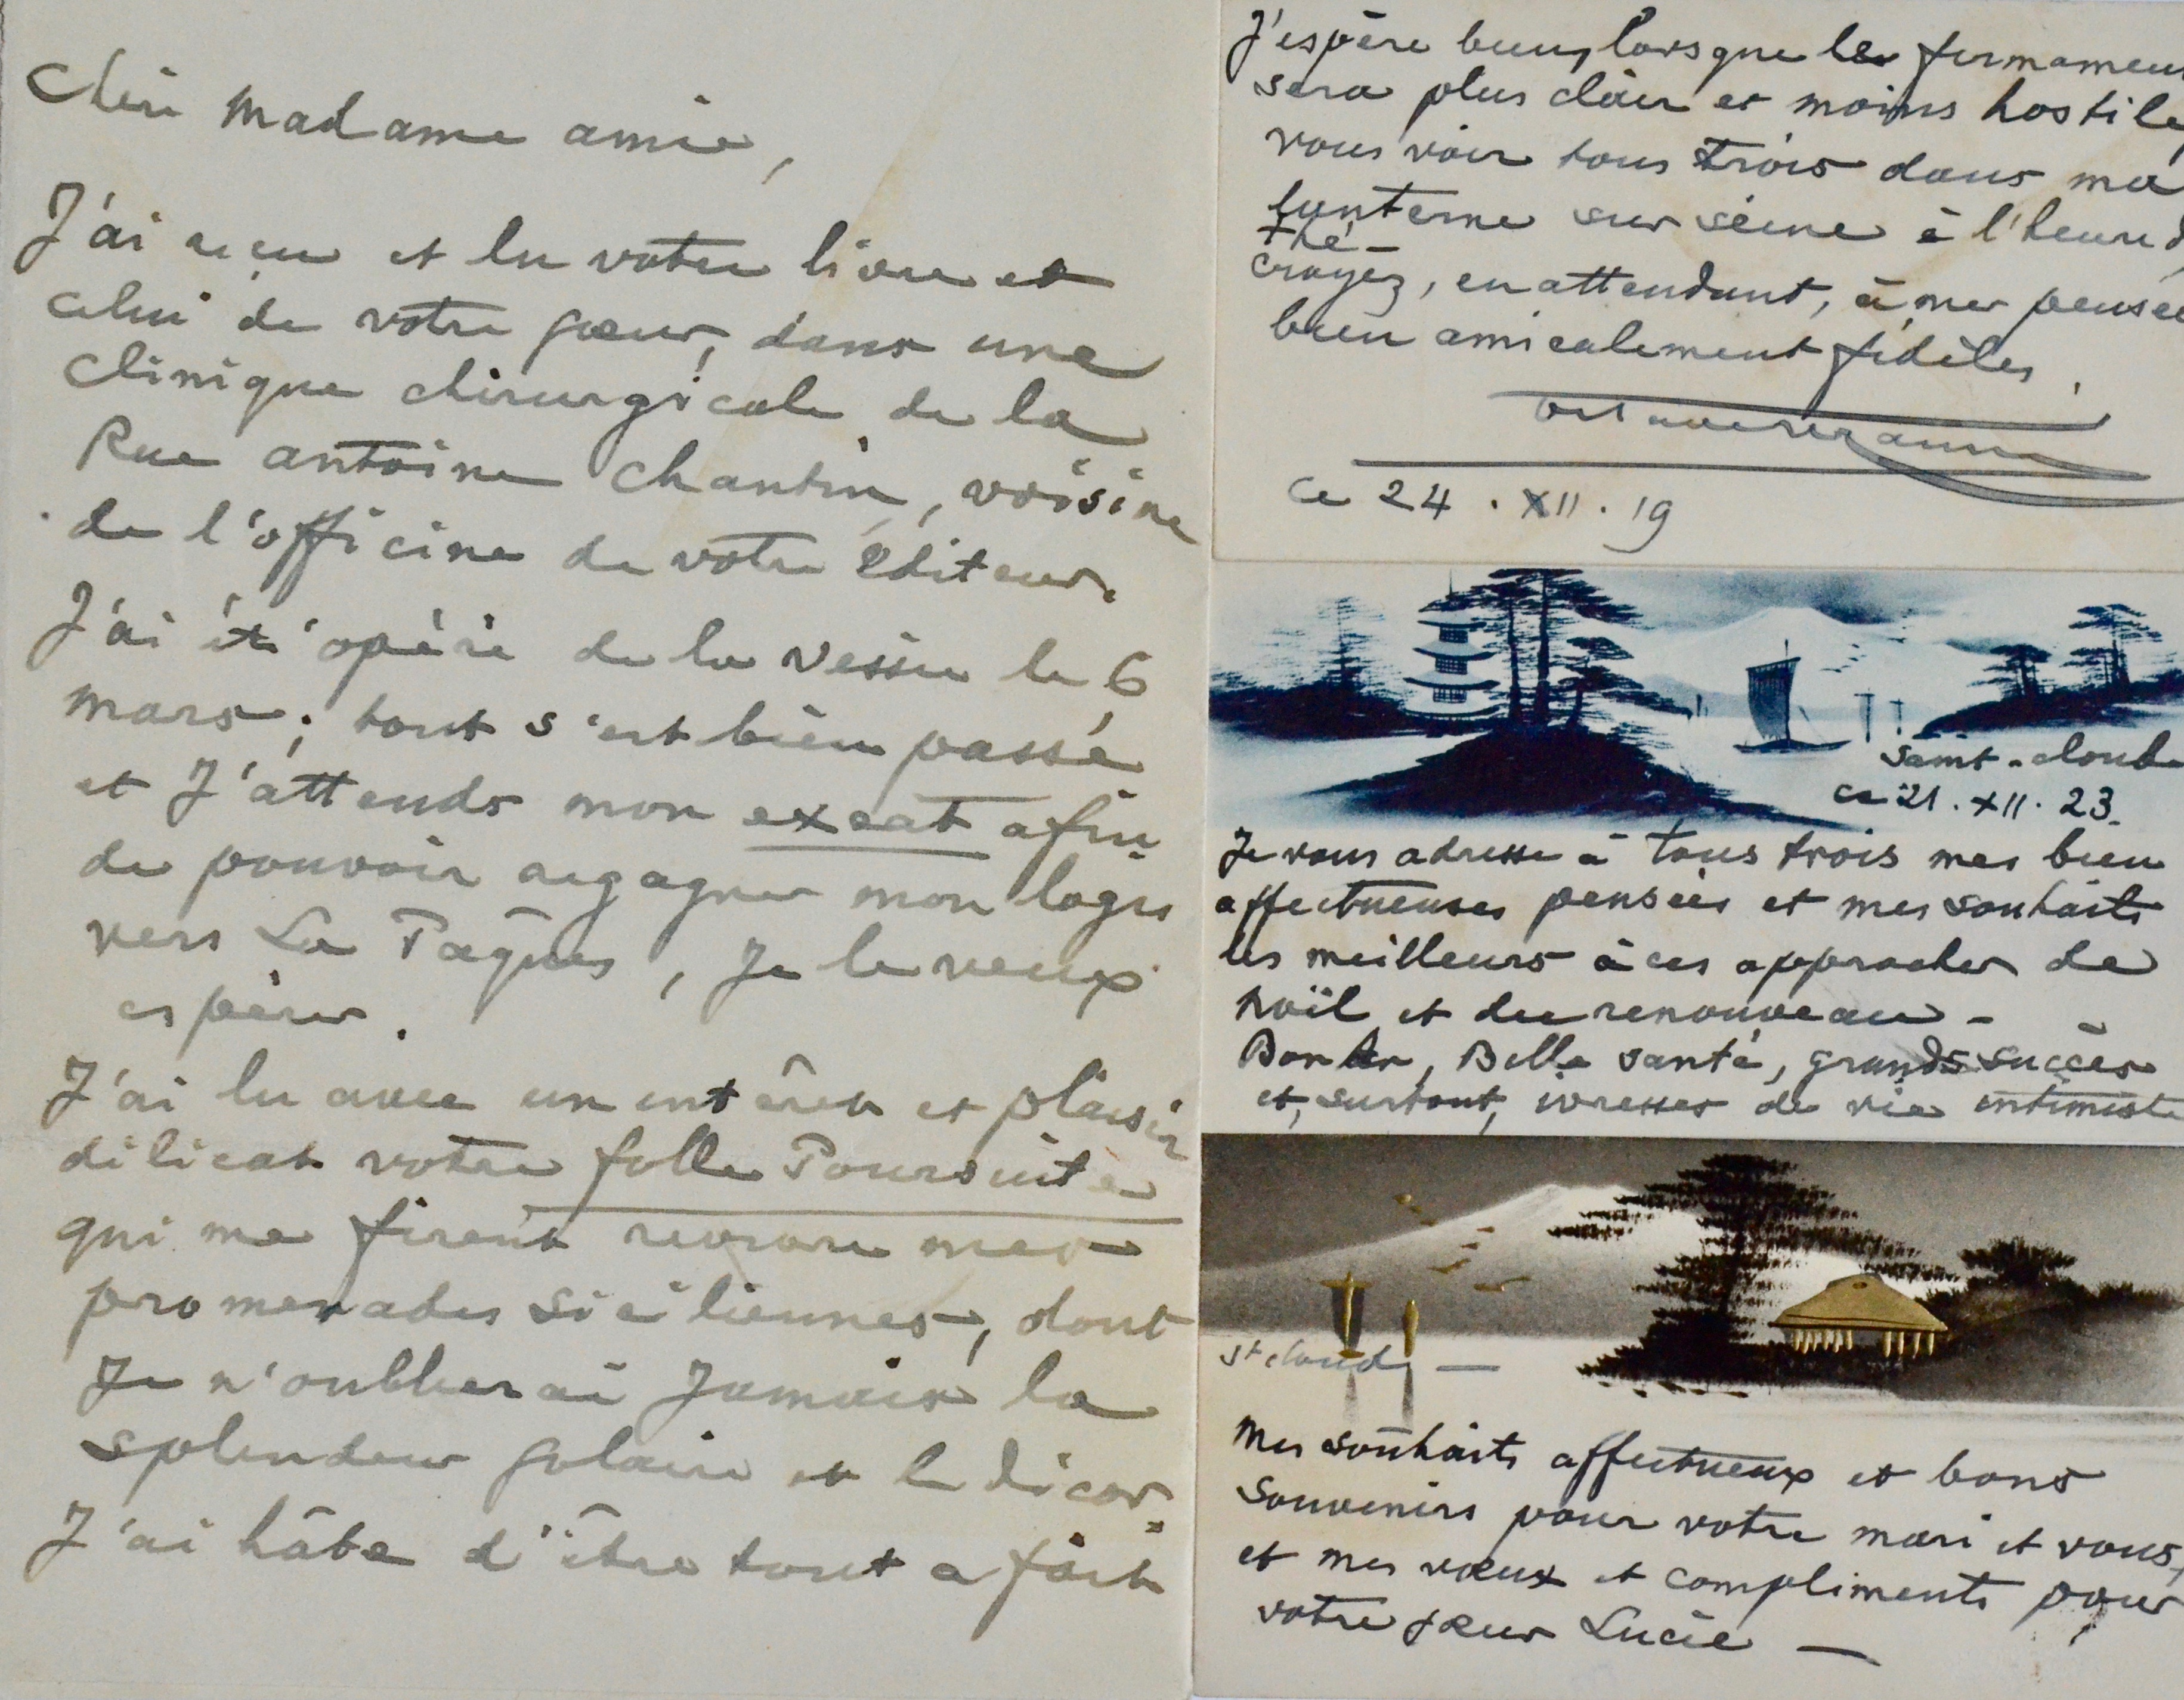 Chère Madame amie,
J'ai reçu et lu votre livre et
celui de votre sœur, dans une
Clinique chirurgicale de la
Rue antoine Chantin, voisine
de l'officine de votre Editeur.
J'ai été opéré de la vessie le 6
mars; tout s'est bien passé
et J'attends mon exeat afin
de pouvoir regagner mon logis
vers La Pâques, Je le veux
espérer.
J'ai lu avec un intérêt et plaisir
délicat votre folle Poursuite
qui me firent revivre mes
promenades siciliennes, dont
Je n'oublierai Jamais la
splendeur solaire et le décor.
J'ai hâte d'être tout a fait
J'espère bien, lorsque le firmament
sera plus clair et moins hostile,
vous voir tous trois dans ma
lanterne sur seine à l'heure d
thé -
croyez, en attendant, à mes pensées
bien amicalement fidèles,
ce 24 . XII . 19
Saint-cloud
ce 21 . XII . 23.
Je vous adresse à tous trois mes bien
affectueuses pensées et mes souhaits
les meilleurs à ces approches de
noël et du renouveau -
Bonheur, Belle santé, grands succès
et, surtout, ivresses de vie intimiste
St cloud —
Mes souhaits affectueux et bons
Souvenirs pour votre mari et vous,
et mes vœux et compliments pour
votre sœur Lucie —